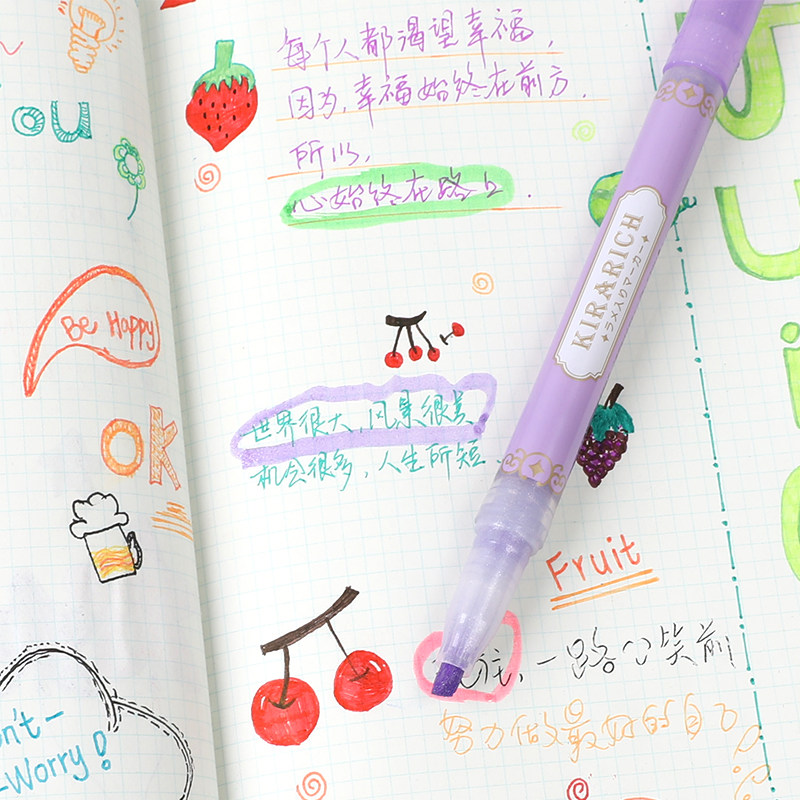 ou
Be Happy
OK
n't-
-Worry!
每个人都渴望幸福，
因为，幸福始终在前方．
所以，
心始终在路上．
世界很大，风景很美
机会很多，人生所短．
Fruit
往，一路心笑前
努力做最好的自己
KIRARICH
ラメ入りマーカー